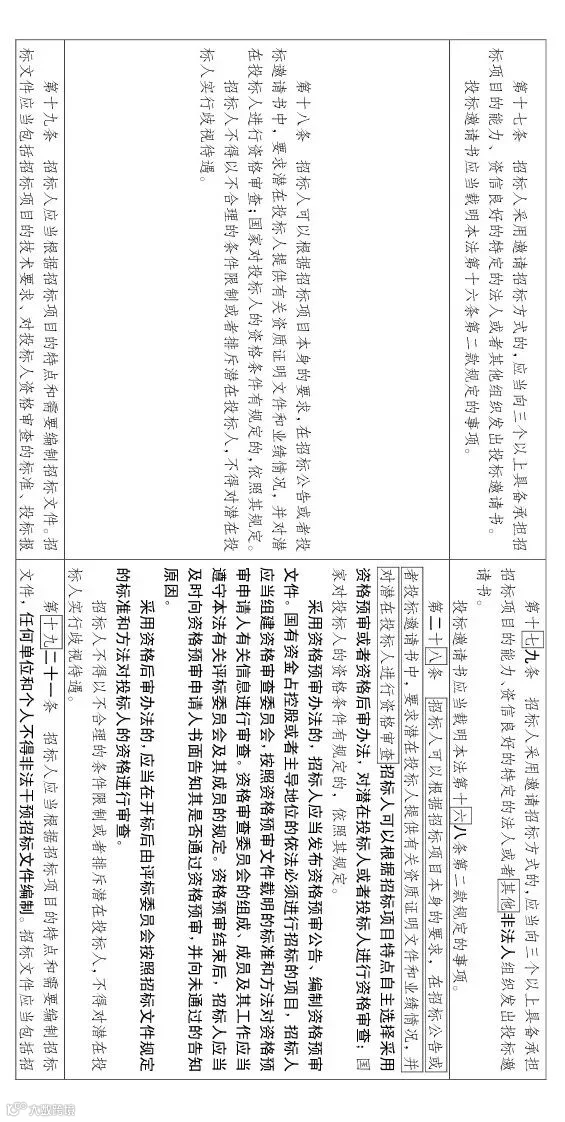 第十七条 招标人采用邀请招标方式的，应当向三个以上具备承担招
标项目的能力、资信良好的特定的法人或者其他组织发出投标邀请书。
投标邀请书应当载明本法第十六条第二款规定的事项。
第十七九条 招标人采用邀请招标方式的，应当向三个以上具备承担
招标项目的能力、资信良好的特定的法人或者其他非法人组织发出投标邀
请书。
投标邀请书应当载明本法第十六八条第二款规定的事项。
第十八条 招标人可以根据招标项目本身的要求，在招标公告或者投
标邀请书中，要求潜在投标人提供有关资质证明文件和业绩情况，并对潜
在投标人进行资格审查；国家对投标人的资格条件有规定的，依照其规定。
招标人不得以不合理的条件限制或者排斥潜在投标人，不得对潜在投
标人实行歧视待遇。
第二十八条 招标人可以根据招标项目本身的要求，在招标公告或
者投标邀请书中，要求潜在投标人提供有关资质证明文件和业绩情况，并
对潜在投标人进行资格审查招标人可以根据招标项目特点自主选择采用
资格预审或者资格后审办法，对潜在投标人或者投标人进行资格审查；国
家对投标人的资格条件有规定的，依照其规定。
采用资格预审办法的，招标人应当发布资格预审公告、编制资格预审
文件。国有资金占控股或者主导地位的依法必须进行招标的项目，招标人
应当组建资格审查委员会，按照资格预审文件载明的标准和方法对资格预
审申请人有关信息进行审查。资格审查委员会的组成、成员及其工作应当
遵守本法有关评标委员会及其成员的规定。资格预审结束后，招标人应当
及时向资格预审申请人书面告知其是否通过资格预审，并向未通过的告知
原因。
采用资格后审办法的，应当在开标后由评标委员会按照招标文件规定
的标准和方法对投标人的资格进行审查。
招标人不得以不合理的条件限制或者排斥潜在投标人，不得对潜在投
标人实行歧视待遇。
第十九条 招标人应当根据招标项目的特点和需要编制招标文件。招
标文件应当包括招标项目的技术要求、对投标人资格审查的标准、投标报
第十九二十一条 招标人应当根据招标项目的特点和需要编制招标
文件，任何单位和个人不得非法干预招标文件编制。招标文件应当包括招
大亚传统